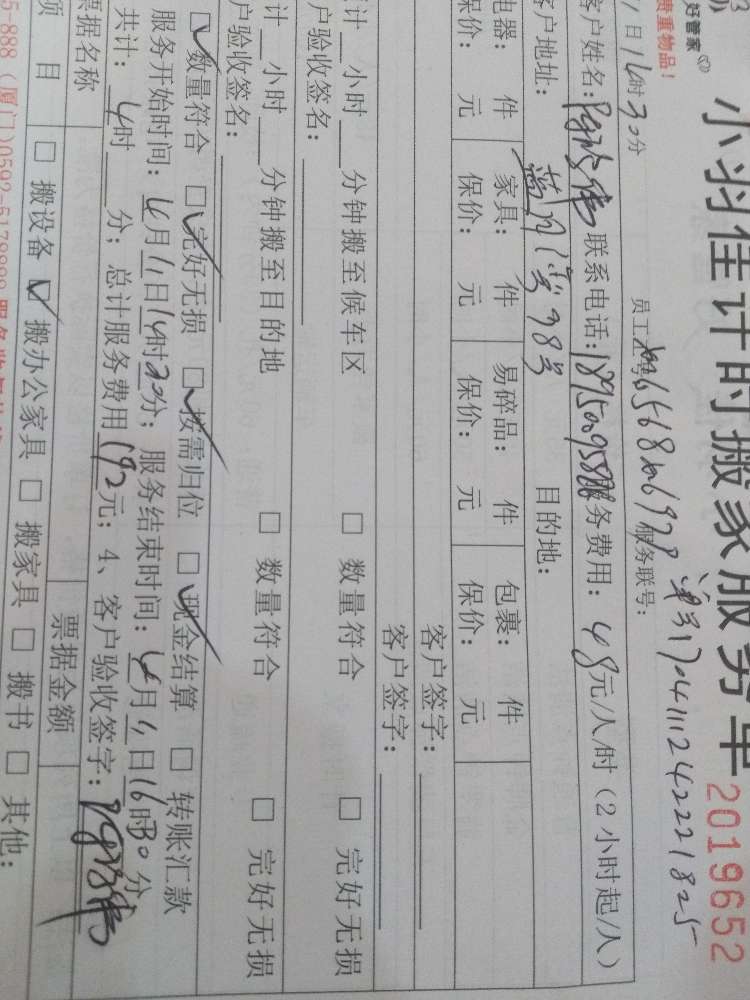 好管家
贵重物品！
小羽佳计时搬家服务单 2019652
员工 服务联号：
1日14时30分
客户姓名： 联系电话：18950095888 服务费用：48元/人/时（2小时起/人）
客户地址： 98号 目的地：
电器： 件 家具： 件 易碎品： 件 包裹： 件
保价： 元 保价： 元 保价： 元 保价： 元
客户签字：
客户签字：
计 小时 分钟搬至候车区 □ 数量符合 □ 完好无损
户验收签名：
计 小时 分钟搬至目的地 □ 数量符合 □ 完好无损
户验收签名：
☑ 数量符合 ☑ 完好无损 ☑ 按需归位 ☑ 现金结算 □ 转账汇款
服务开始时间：4月11日14时30分；服务结束时间：4月11日16时30分
共计：4时 分；总计服务费用192元；4、客户验收签字：
票据名称 票据金额
项 目 □ 搬设备 ☑ 搬办公家具 □ 搬家具 □ 搬书 □ 其他：